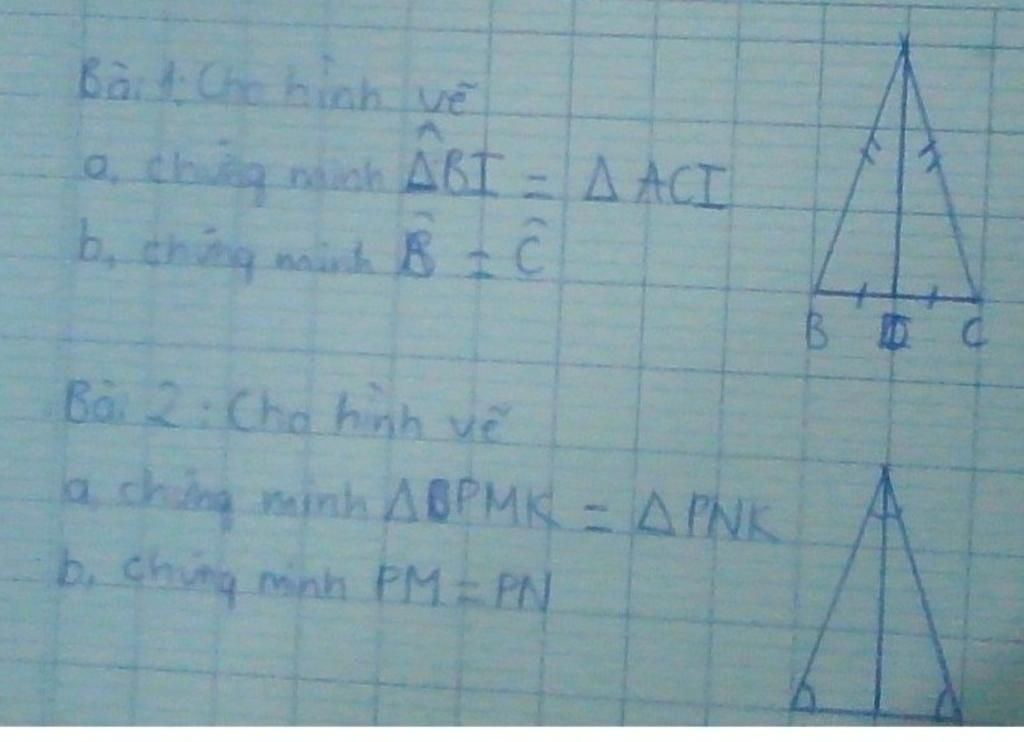 Bài 1: Cho hình vẽ
a, chứng minh ΔABI = Δ ACI
b, chứng minh B̂ = Ĉ
B I C
Bài 2: Cho hình vẽ
a, chứng minh ΔPMK = Δ PNK
b, chứng minh PM = PN